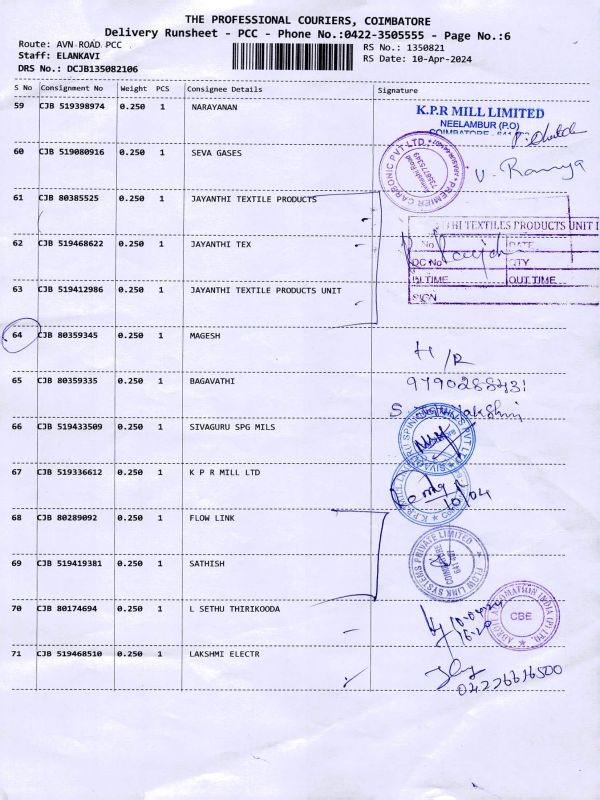 THE PROFESSIONAL COURIERS, COIMBATORE
Delivery Runsheet - PCC - Phone No.:0422-3505555 - Page No.:6
Route: AVN ROAD PCC
Staff: ELANKAVI
DRS No.: DCJB135082106
RS No.: 1350821
RS Date: 10-Apr-2024
S No Consignment No Weight PCS Consignee Details Signature
59 CJB 519398974 0.250 1 NARAYANAN
K.P.R MILL LIMITED
NEELAMBUR (P.O)
60 CJB 519080916 0.250 1 SEVA GASES
PREMIER CARBONIC PVT.LTD.
V. Ramya
61 CJB 80385525 0.250 1 JAYANTHI TEXTILE PRODUCTS
THI TEXTILES PRODUCTS UNIT I
62 CJB 519468622 0.250 1 JAYANTHI TEX
No DATE
DC No QTY
63 CJB 519412986 0.250 1 JAYANTHI TEXTILE PRODUCTS UNIT
IN TIME OUT TIME
SIGN
64 CJB 80359345 0.250 1 MAGESH
H/R
65 CJB 80359335 0.250 1 BAGAVATHI
9790288431
66 CJB 519433509 0.250 1 SIVAGURU SPG MILS
SIVAGURU SPINNING MILLS PVT LTD
67 CJB 519336612 0.250 1 K P R MILL LTD
10/04
68 CJB 80289092 0.250 1 FLOW LINK
FLOW LINK SYSTEMS PRIVATE LIMITED
COIMBATORE
69 CJB 519419381 0.250 1 SATHISH
70 CJB 80174694 0.250 1 L SETHU THIRIKOODA
16-20
CBE
71 CJB 519468510 0.250 1 LAKSHMI ELECTR
04226616500